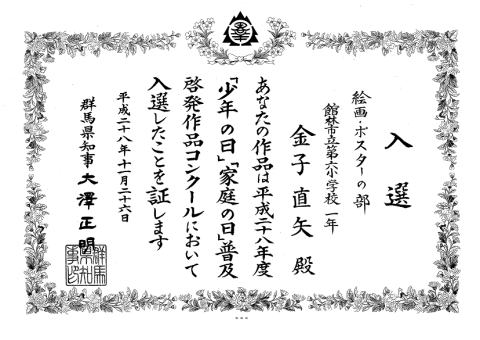 入選
絵画・ポスターの部
館林市立第六小学校 一年
金子直矢 殿
あなたの作品は平成二十八年度
「少年の日」「家庭の日」普及
啓発作品コンクールにおいて
入選したことを証します
平成二十八年十一月二十六日
群馬県知事 大澤正明
群馬県知事印